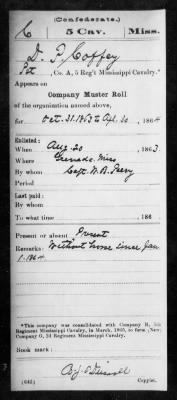 (Confederate.)
C 5 Cav. Miss.
D. T. Coffey
Pvt, Co. A, 5 Reg't Mississippi Cavalry.*
Appears on
Company Muster Roll
of the organization named above,
for Oct. 31. 1863 to Apl. 30, 1864
Enlisted:
When Aug. 20, 1863
Where Grenada, Miss
By whom Capt.
Period
Last paid:
By whom
To what time , 186
Present or absent Present
Remarks: Without horse since Jan
1-1864
*This company was consolidated with Company B, 5th
Regiment Mississippi Cavalry, in March, 1865, to form (New)
Company G, Regiment Mississippi Cavalry.
Book mark:
(642) Copyist.